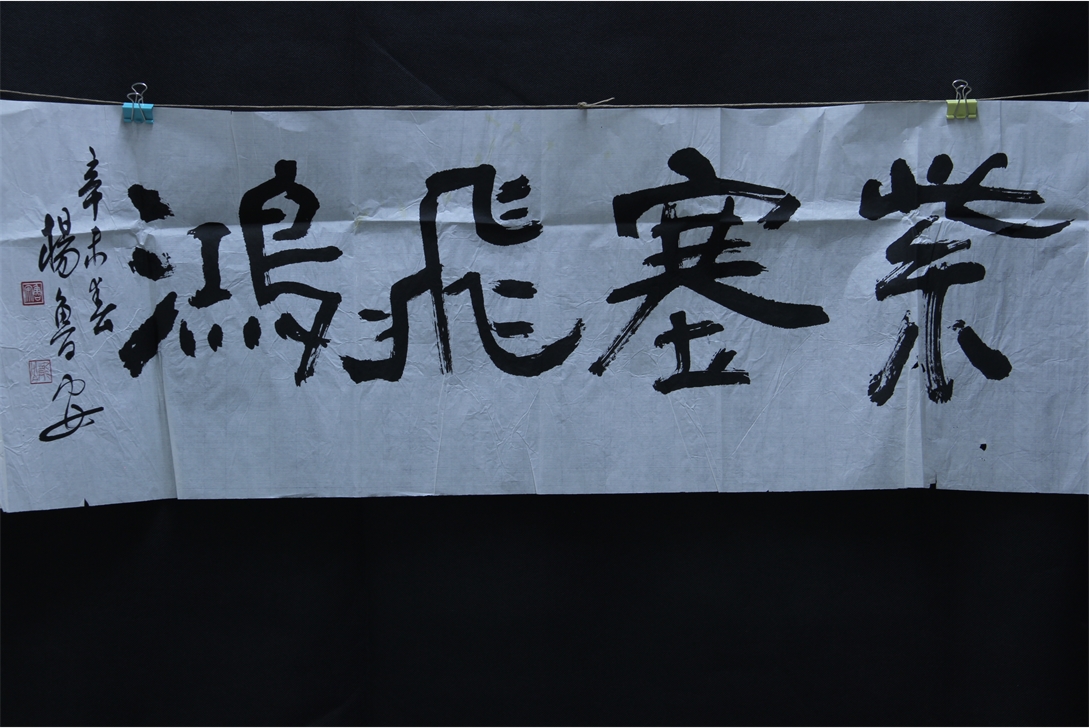 紫塞飛鴻
辛未春
楊魯安